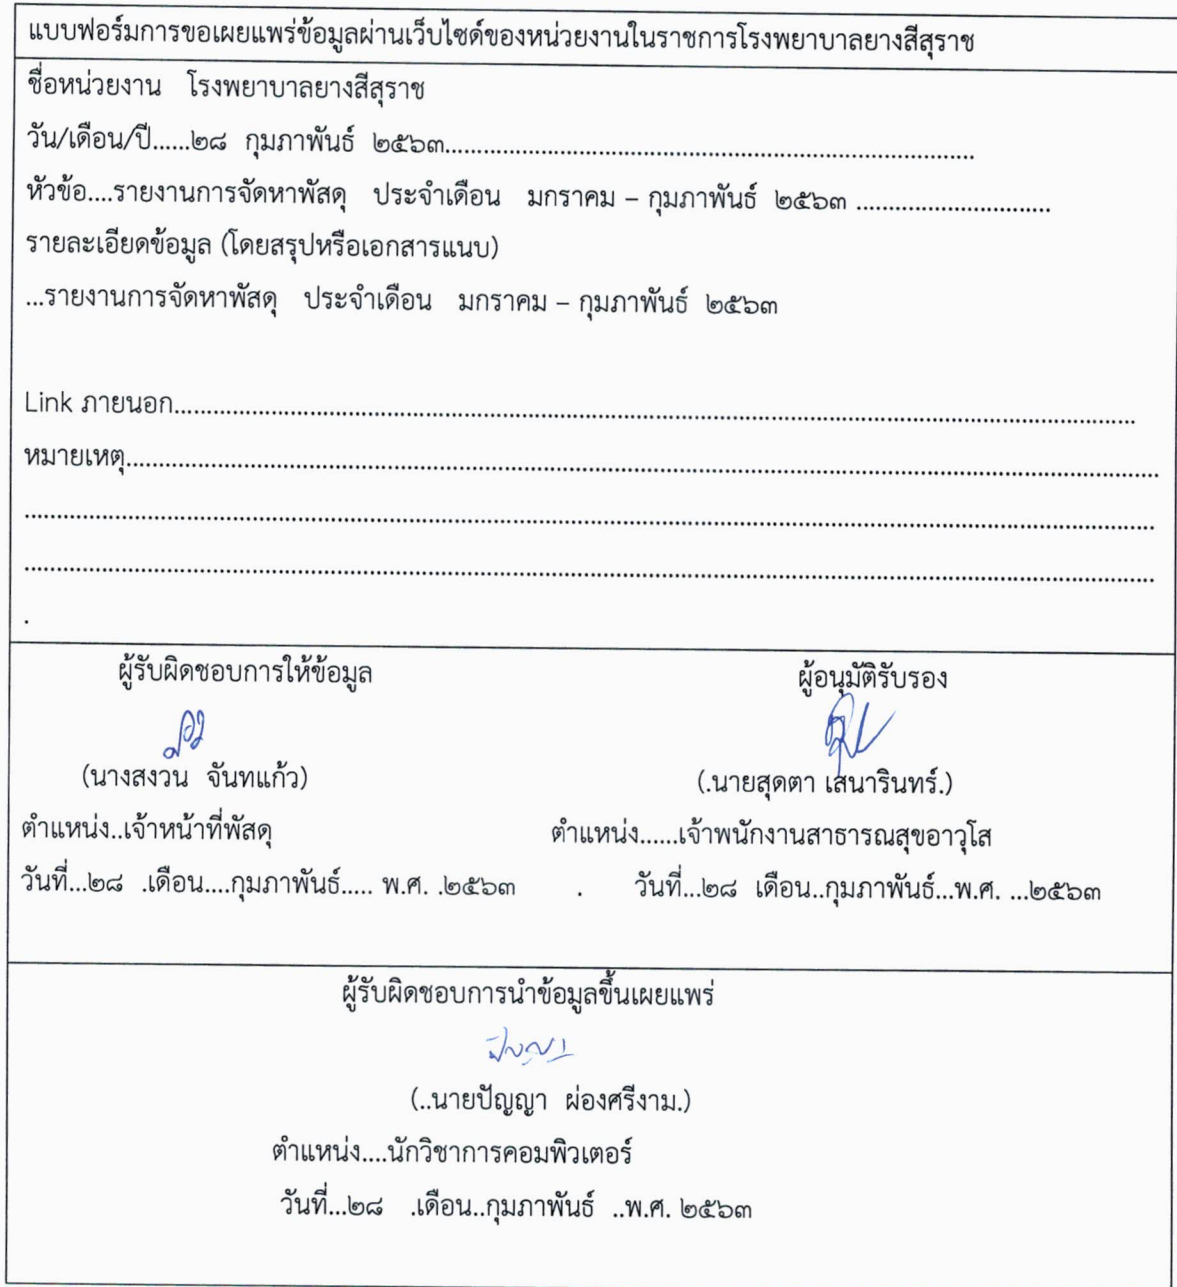 แบบฟอร์มการขอเผยแพร่ข้อมูลผ่านเว็บไซต์ของหน่วยงานในราชการโรงพยาบาลยางสีสุราช
ชื่อหน่วยงาน โรงพยาบาลยางสีสุราช
วัน/เดือน/ปี......๒๘ กุมภาพันธ์ ๒๕๖๓..................................................................................
หัวข้อ....รายงานการจัดหาพัสดุ ประจำเดือน มกราคม – กุมภาพันธ์ ๒๕๖๓ ..............................
รายละเอียดข้อมูล (โดยสรุปหรือเอกสารแนบ)
...รายงานการจัดหาพัสดุ ประจำเดือน มกราคม – กุมภาพันธ์ ๒๕๖๓
Link ภายนอก....................................................................................................................................................
หมายเหตุ................................................................................................................................................................
................................................................................................................................................................................
................................................................................................................................................................................
.
ผู้รับผิดชอบการให้ข้อมูล ผู้อนุมัติรับรอง
(นางสงวน จันทแก้ว) (.นายสุดตา เสนารินทร์.)
ตำแหน่ง..เจ้าหน้าที่พัสดุ ตำแหน่ง......เจ้าพนักงานสาธารณสุขอาวุโส
วันที่...๒๘ .เดือน....กุมภาพันธ์..... พ.ศ. .๒๕๖๓ . วันที่...๒๘ เดือน..กุมภาพันธ์...พ.ศ. ...๒๕๖๓
ผู้รับผิดชอบการนำข้อมูลขึ้นเผยแพร่
ปัญญา
(..นายปัญญา ผ่องศรีงาม.)
ตำแหน่ง....นักวิชาการคอมพิวเตอร์
วันที่...๒๘ .เดือน..กุมภาพันธ์ ..พ.ศ. ๒๕๖๓